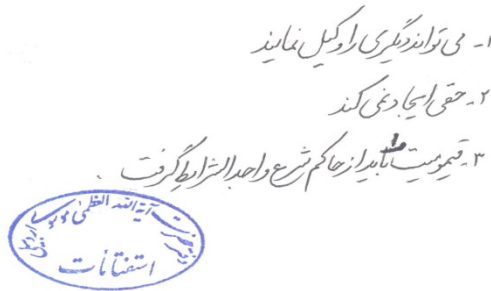 ۱- می توانند دیگری را وکیل نمایند
۲- حقی ایجاد نمی کند
۳- قیمومیت را باید از حاکم شرع واجد الشرایط گرفت.
دفتر حضرت آیة الله العظمی موسوی اردبیلی
استفتائات